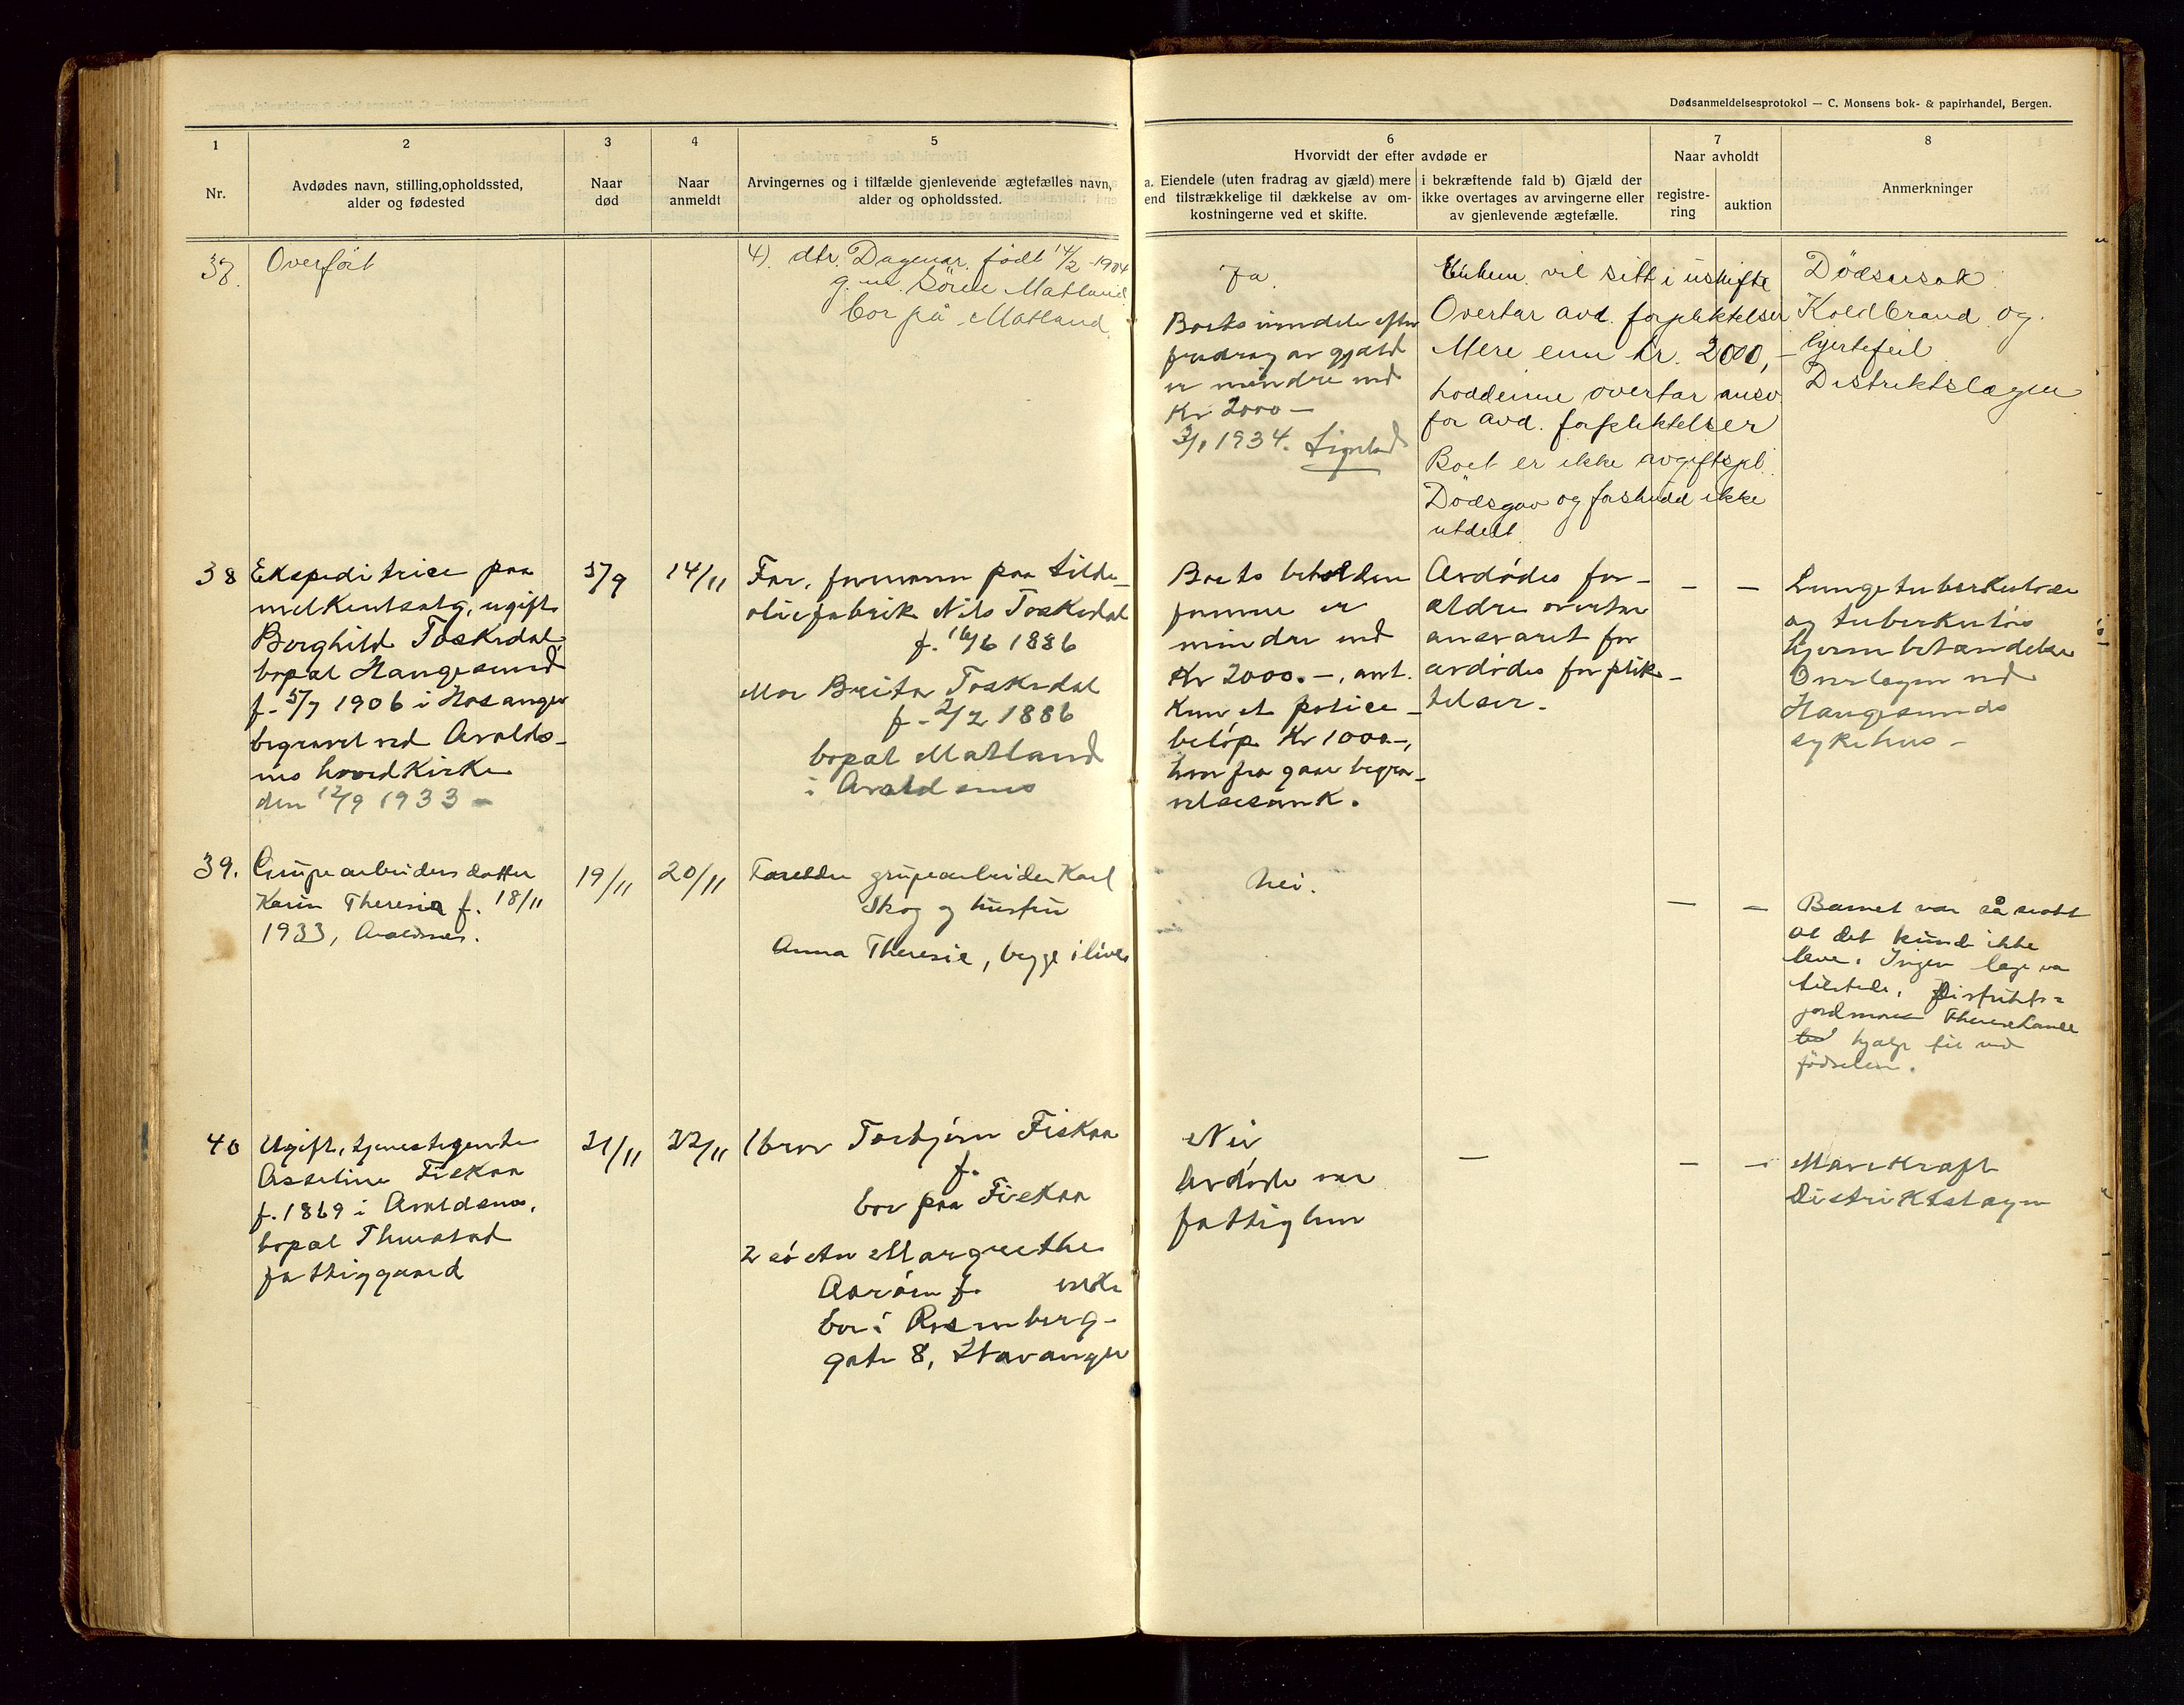 Dødsanmeldelsesprotokol — C. Monsens bok- & papirhandel, Bergen.
1
Nr.
2
Avdødes navn, stilling, opholdssted,
alder og fødested
3
Naar
død
4
Naar
anmeldt
5
Arvingernes og i tilfælde gjenlevende ægtefælles navn,
alder og opholdssted.
6
Hvorvidt der efter avdøde er
a. Eiendele (uten fradrag av gjæld) mere
end tilstrækkelige til dækkelse av om-
kostningerne ved et skifte.
i bekræftende fald b) Gjæld der
ikke overtages av arvingerne eller
av gjenlevende ægtefælle.
7
Naar avholdt
registre-
ring
auktion
8
Anmerkninger
37.
Overført
4). dtr. Dagmar født 14/2 - 1904
g. m. Sören Matland
bor på Matland
Ja.
Boets eiendele efter
fradrag av gjæld
er mindre end
Kr 2000 —
3/1 1934.
Enken vil sitt i uskifte
Overtar avd. forpliktelser
Mere enn kr. 2000,-
loddeiene overtar ansv.
for avd. forpliktelser
Boet er ikke avgiftspl.
Dødsgav og forskudd ikke
utdelt
Dødsårsak
Koldbrand og
hjertefeil
Distriktslægen
38
Ekspeditrice paa
melkeutsalg, ugift
Borghild Toskedal,
bopæl Haugesund
f. 5/7 1906 i Hosanger
begravet ved Avalds-
nes hovedkirke
den 12/9 1933 -
5/9
14/11
Far, formann paa Silde-
oliefabrik Nils Toskedal
f. 16/6 1886
Mor Breita Toskedal
f. 2/2 1886
bopæl Matland
i Avaldsnes
Boets beholdne
formue er
mindre end
Kr 2000.-, ant.
kun et police-
beløp Kr 1000-,
hvor fra gaar begra-
velsesomk.
Avdødes for-
ældre overtar
ansvaret for
avdødes forplik-
telser.
—
—
Lungetuberkulose
og tuberkuløs
hjernebetændelse
Overlægen ved
Haugesunds
sykehus -
39.
Grupearbeiders datter
Karin Theresia f. 18/11
1933, Avaldsnes.
19/11
20/11
Foreldre grupearbeider Karl
Skog og hustru
Anna Theresie, begge i live
Nei.
—
—
Barnet var så svakt
at det kunde ikke
leve. Ingen læge var
tilstede. Distrikts-
jordmor Therese
hjalp til ved
fødselen.
40
Ugift, tjenestejente
Asseline Fiskaa
f. 1869 i Avaldsnes,
bopæl
fattiggaard
21/11
22/11
1 bror Torbjørn Fiskaa
f.
bor paa Fiskaa
2 søster Margrethe
f. enke
bor i Rosenberg-
gate 8, Stavanger
Nei
Avdøde var
fattiglem
—
—
—
Mavekræft
Distriktslægen